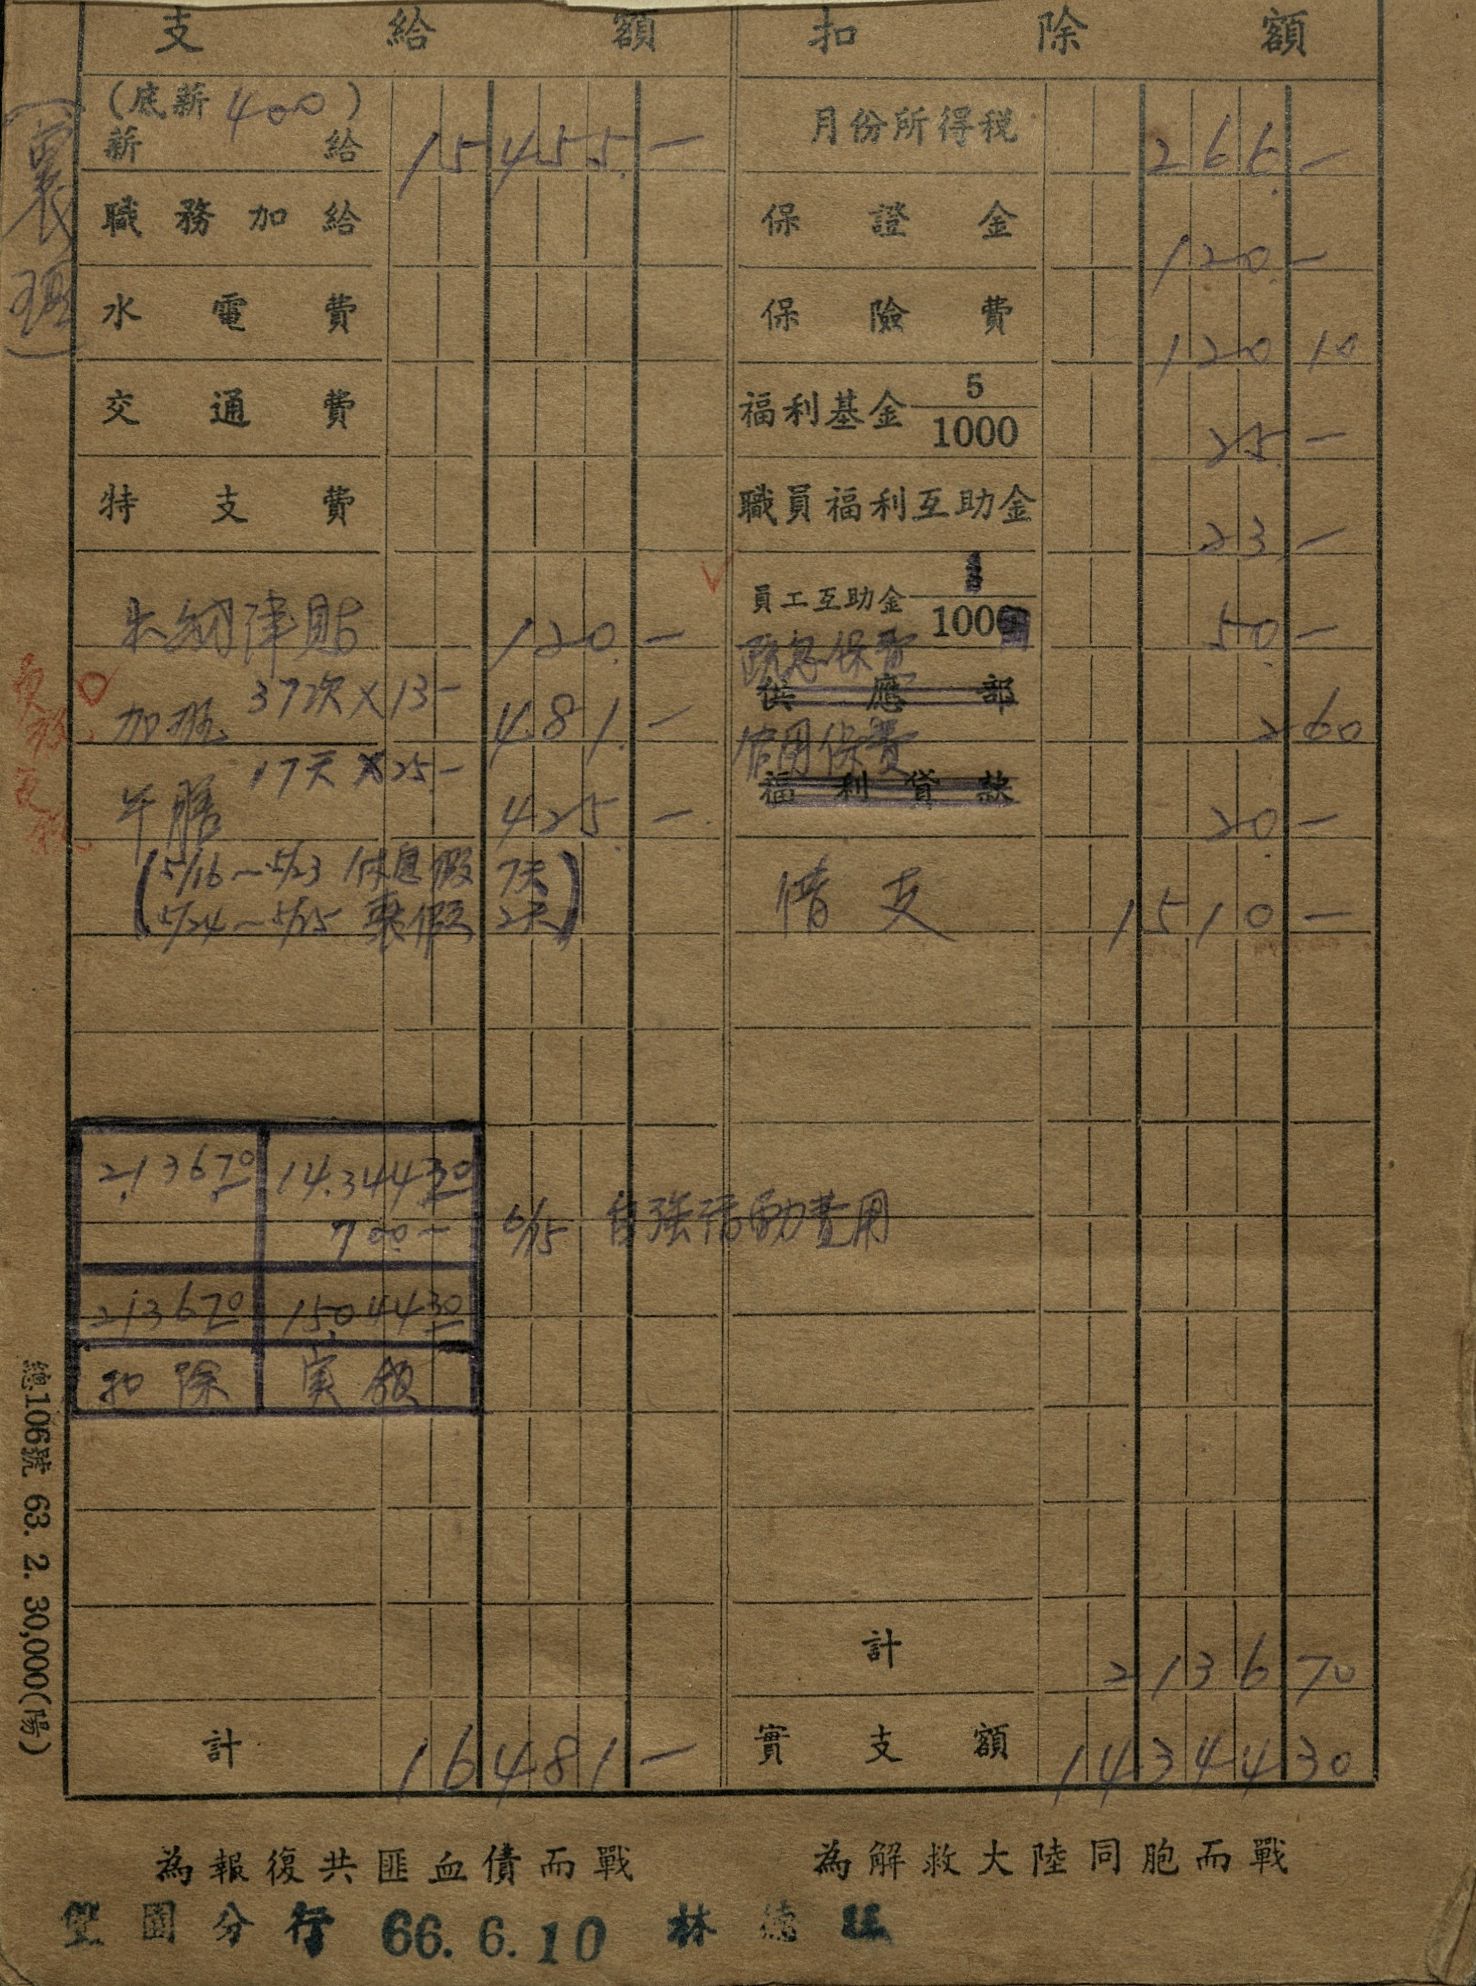 支給額 扣除額
(底薪400)
薪給 15455.— 月份所得稅 266.—
職務加給 保證金 120.—
水電費 保險費 120 10
交通費 福利基金 5/1000 25.—
特支費 職員福利互助金 23.—
津貼 120.— 員工互助金 /100 50.—
保費
供應部 2 60
加班 37次×13— 481.—
信用保費
福利貸款 20.—
午膳 17天×25— 425.—
(5/16—5/23 休息假 7天
5/24—5/25 2天)
借支 1510.—
2,136.70 14,344.30
700.— 6/15 自強活動費用
2,136.70 15,044.30
扣除 実領
計 2136 70
計 16481— 實支額 14344 30
(襄理)
總106號 63. 2. 30,000(陽)
為報復共匪血債而戰 為解救大陸同胞而戰
分行 66.6.10 林